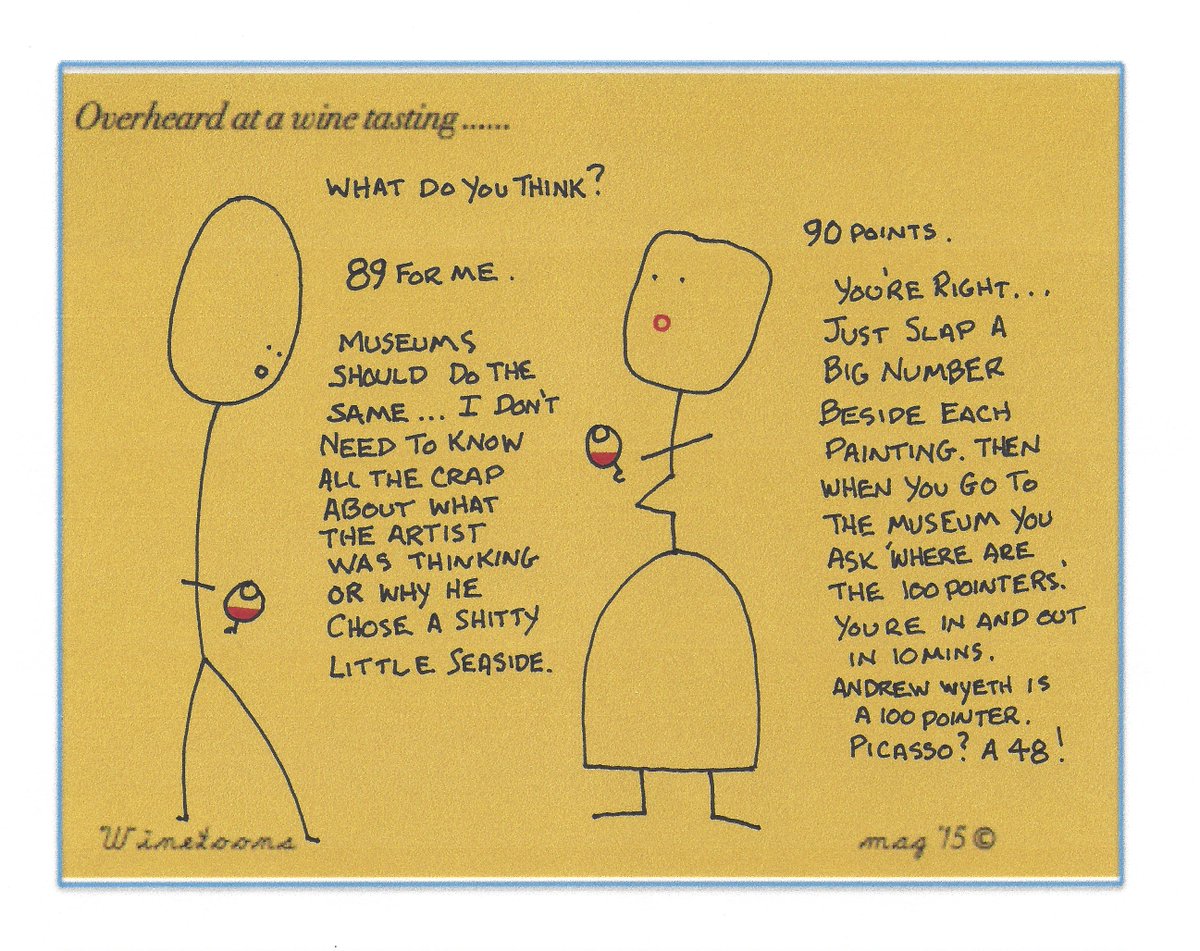 Overheard at a wine tasting......
WHAT DO YOU THINK?
90 POINTS.
89 FOR ME.
MUSEUMS
SHOULD DO THE
SAME... I DON'T
NEED TO KNOW
ALL THE CRAP
ABOUT WHAT
THE ARTIST
WAS THINKING
OR WHY HE
CHOSE A SHITTY
LITTLE SEASIDE.
YOU'RE RIGHT...
JUST SLAP A
BIG NUMBER
BESIDE EACH
PAINTING. THEN
WHEN YOU GO TO
THE MUSEUM YOU
ASK 'WHERE ARE
THE 100 POINTERS.'
YOU'RE IN AND OUT
IN 10 MINS.
ANDREW WYETH IS
A 100 POINTER.
PICASSO? A 48!
Winetoons
mag '15 ©